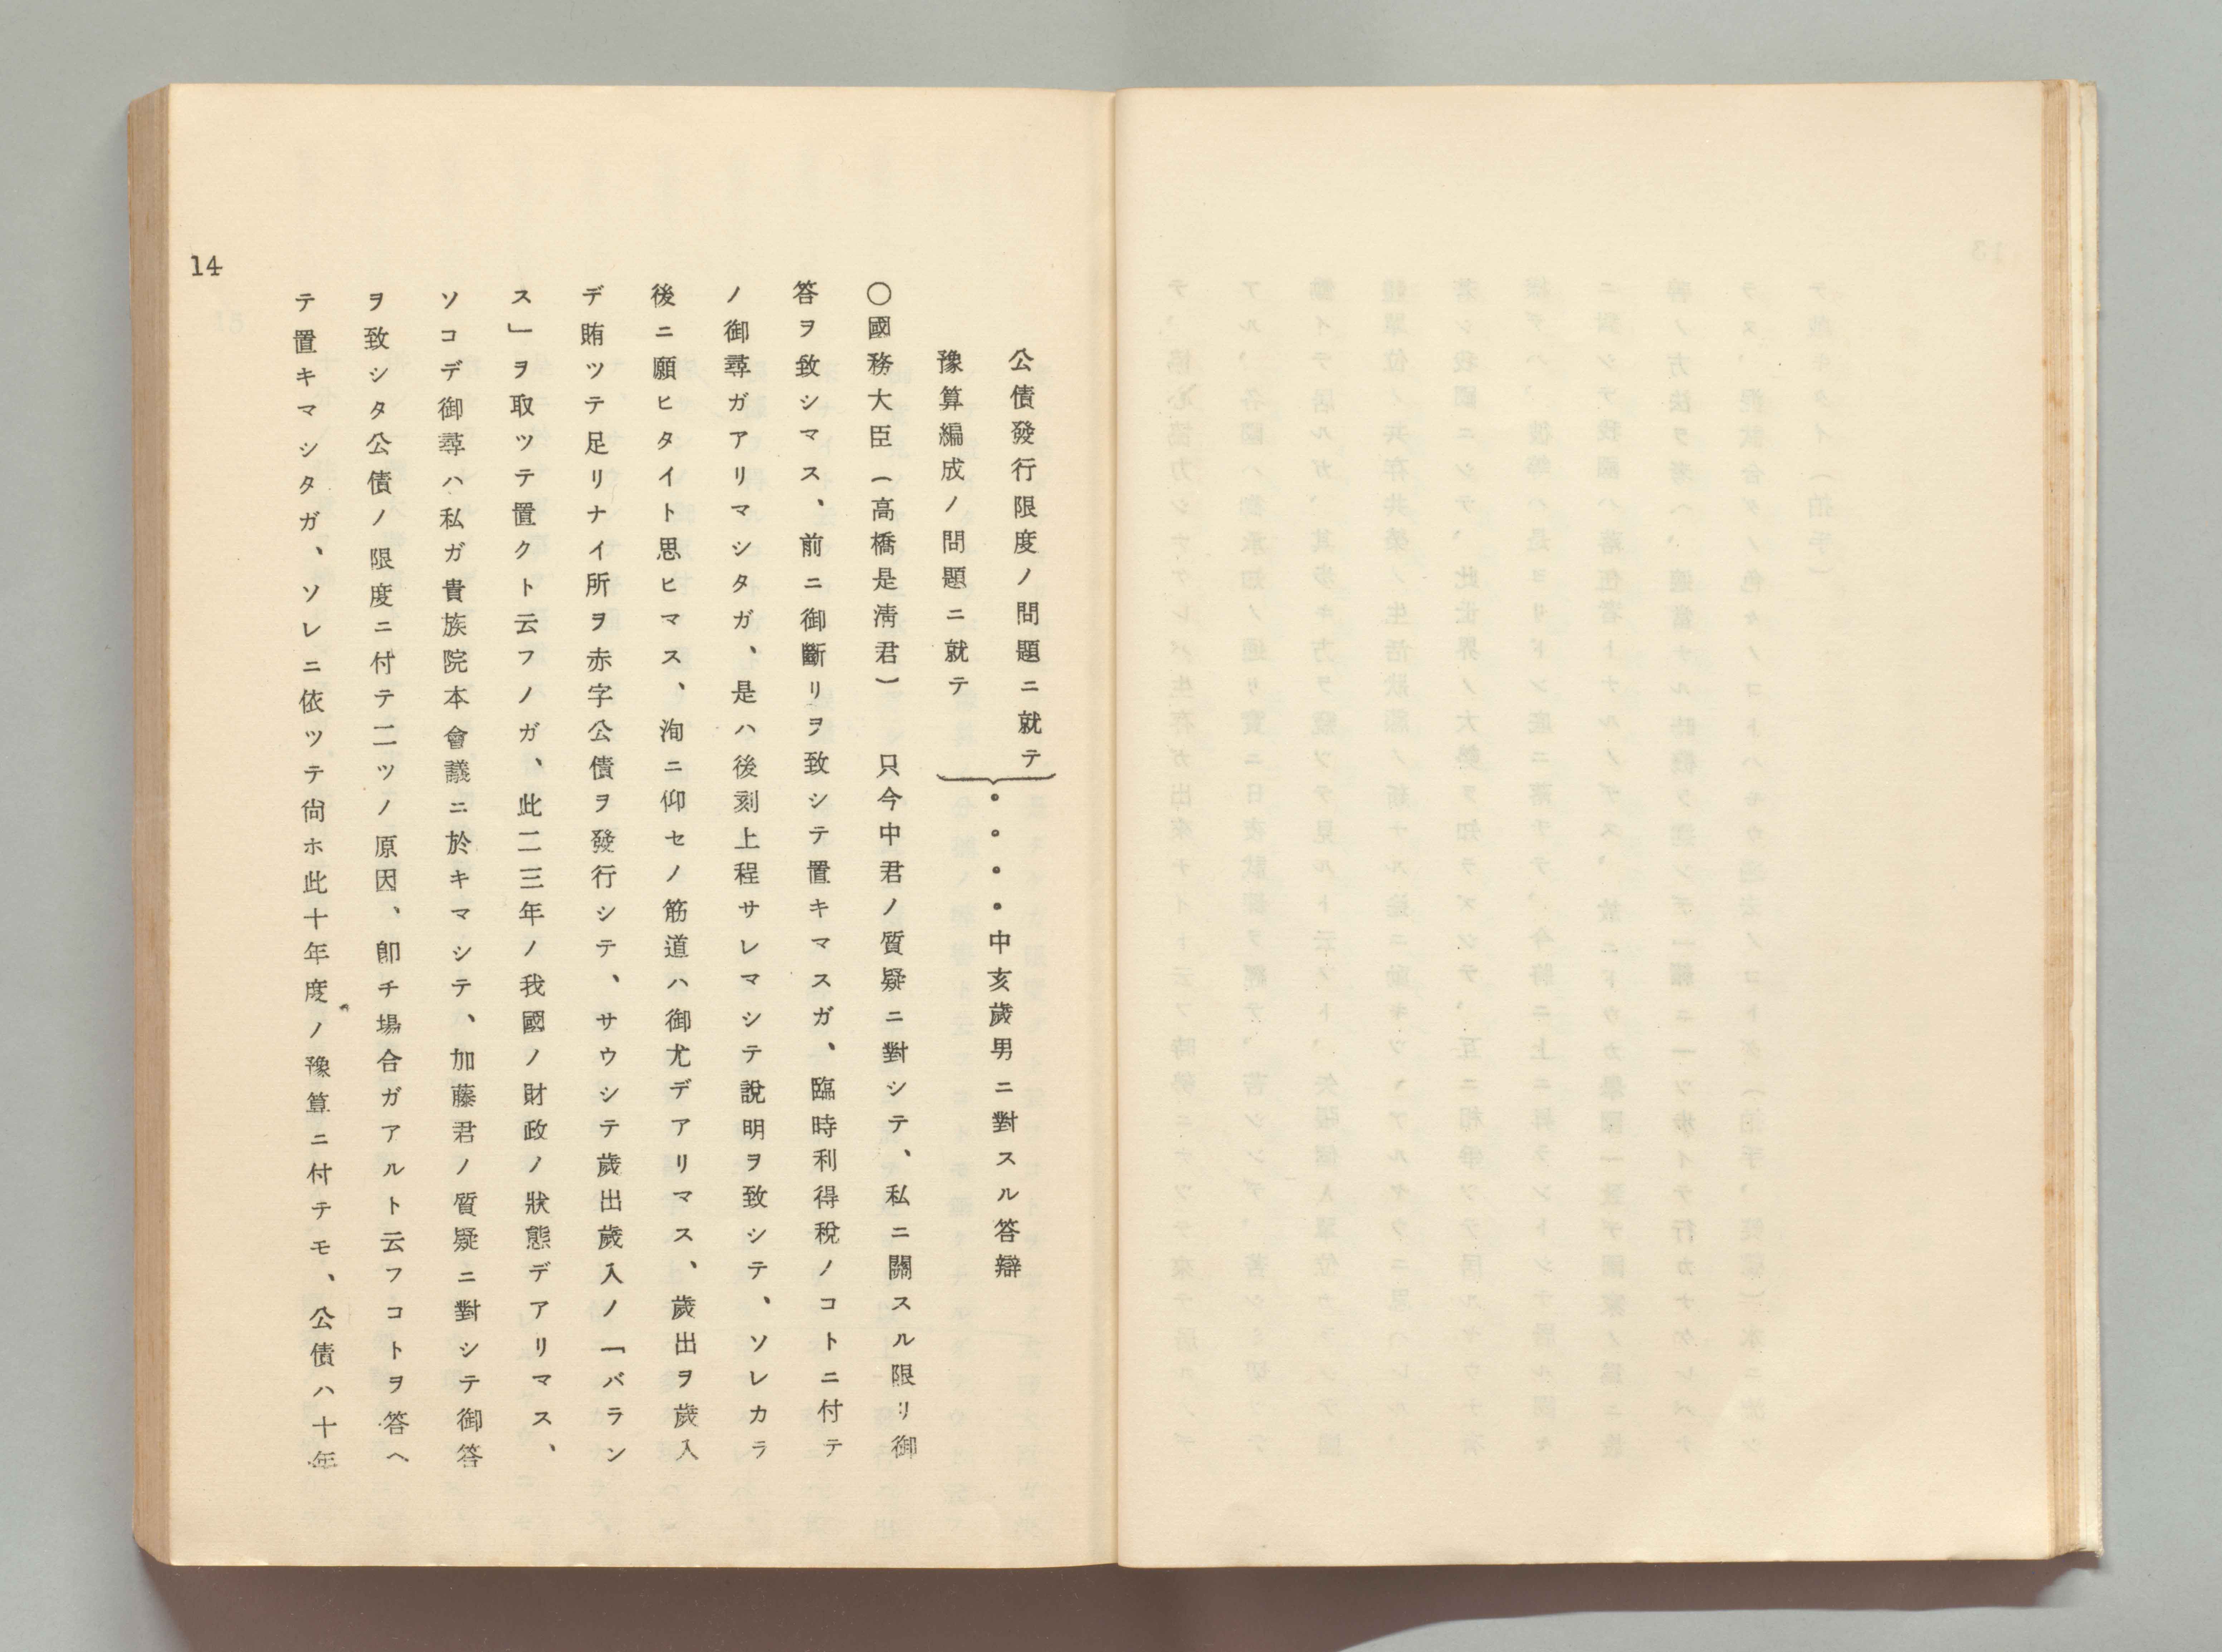 公債發行限度ノ問題ニ就テ
豫算編成ノ問題ニ就テ
。。。。中亥歲男ニ對スル答辯
〇國務大臣(高橋是淸君) 只今中君ノ質疑ニ對シテ、私ニ關スル限リ御
答ヲ致シマス、前ニ御斷リヲ致シテ置キマスガ、臨時利得稅ノコトニ付テ
ノ御尋ガアリマシタガ、是ハ後刻上程サレマシテ說明ヲ致シテ、ソレカラ
後ニ願ヒタイト思ヒマス、洵ニ仰セノ筋道ハ御尤デアリマス、歲出ヲ歲入
デ賄ツテ足リナイ所ヲ赤字公債ヲ發行シテ、サウシテ歲出歲入ノ「バラン
ス」ヲ取ツテ置クト云フノガ、此二三年ノ我國ノ財政ノ狀態デアリマス、
ソコデ御尋ハ私ガ貴族院本會議ニ於キマシテ、加藤君ノ質疑ニ對シテ御答
ヲ致シタ公債ノ限度ニ付テ二ツノ原因、卽チ場合ガアルト云フコトヲ答ヘ
テ置キマシタガ、ソレニ依ツテ尙ホ此十年度ノ豫算ニ付テモ、公債ハ十年
14